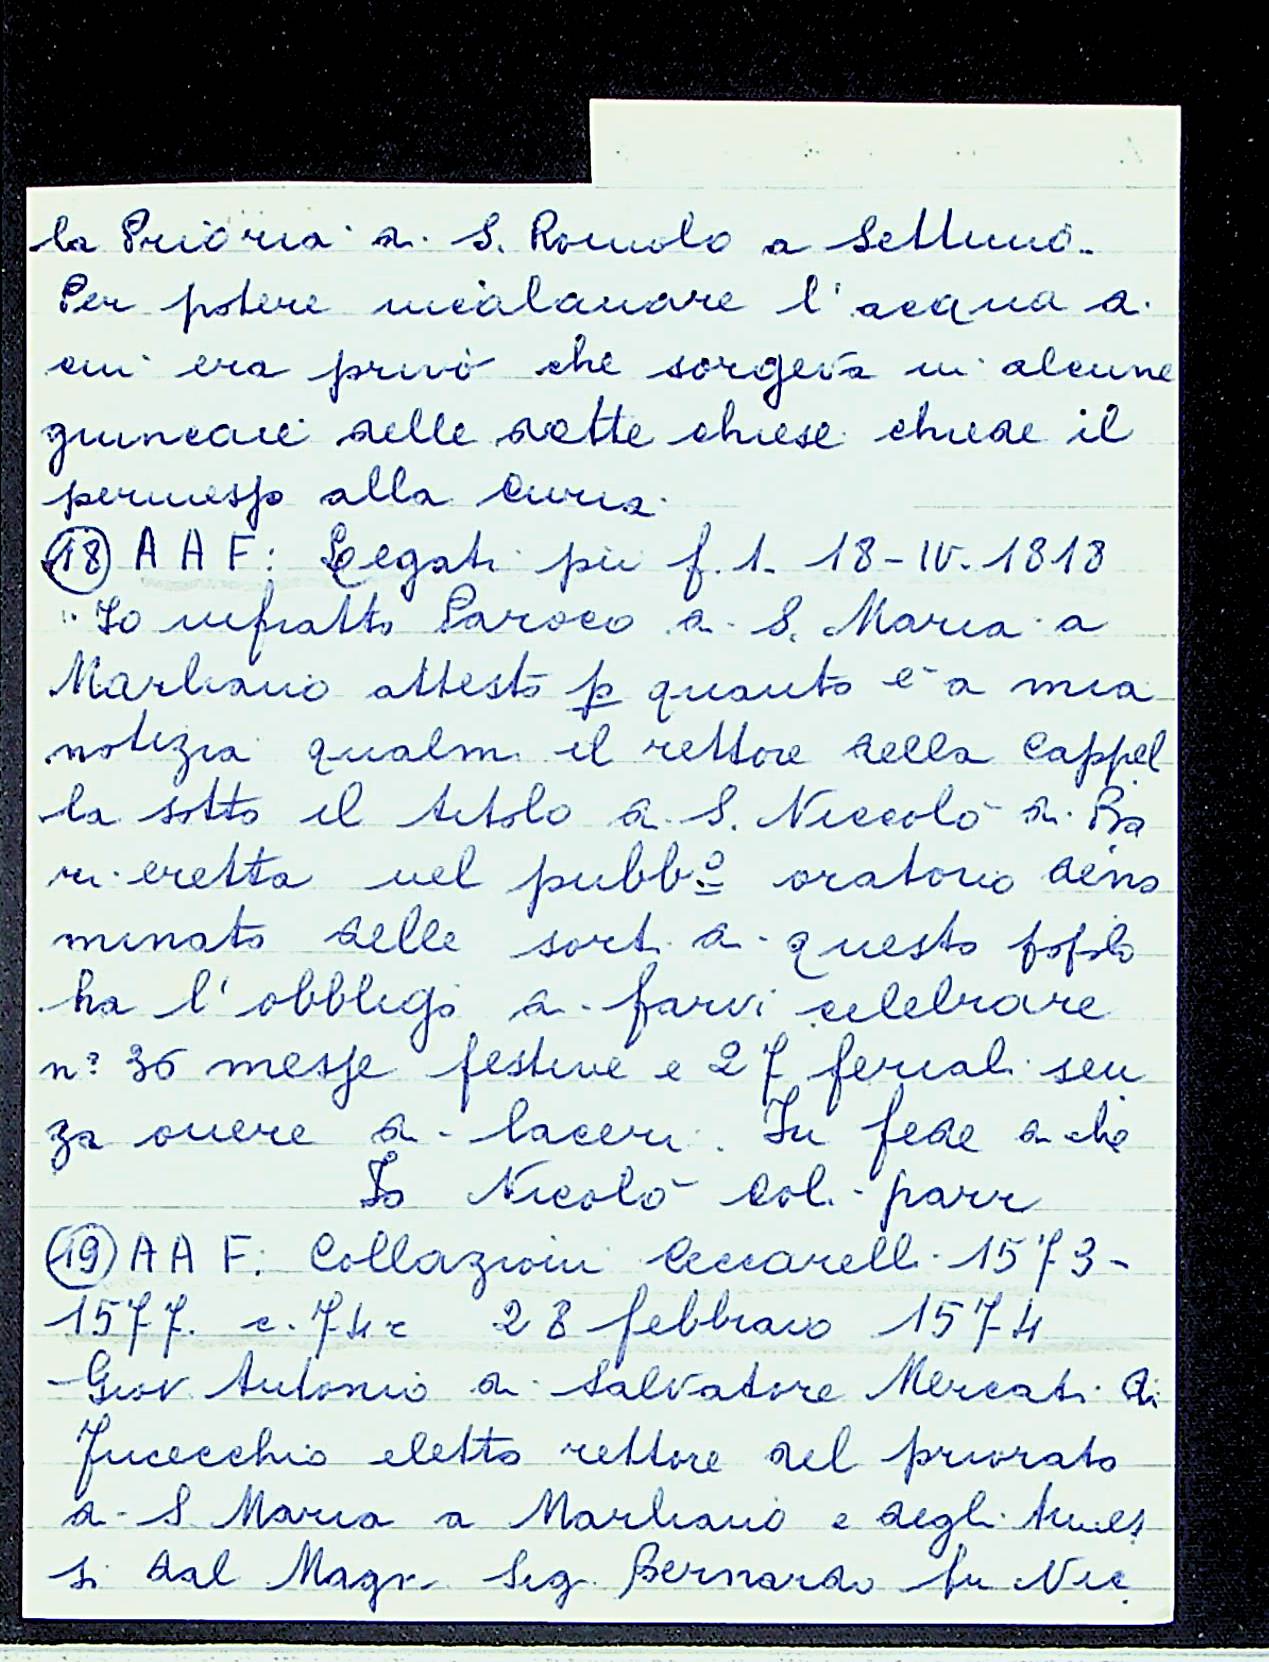 la Prioria di S. Romolo a Settimo.
Per potere incalanare l'acqua di
cui era privo che sorgeva in alcune
giuncaie delle dette chiese chiede il
permesso alla Curia.
(18) A A F: Legati pii f. 1. 18-IV-1818
"Io infratto Paroco di S. Maria a
Marliano attesto p quanto è a mia
notizia qualm. il rettore della Cappel
la sotto il titolo di S. Niccolò di Ba
ri eretta nel pubb.o oratorio deno
minato delle sorti di questo popolo
ha l'obbligo di farvi celebrare
n° 36 messe festive e 27 feriali sen
za onere di laceri. In fede di che
Io Nicolò Col. parr
(19) A A F. Collazioni Ceccarelli 1573-
1577. c. 74r 28 febbraio 1574
-Giov Antonio di Salvatore Mercati di
Fucecchio eletto rettore del priorato
di S Maria a Marliano e degli Annes
si dal Magn. Sig. Bernardo fu Nic